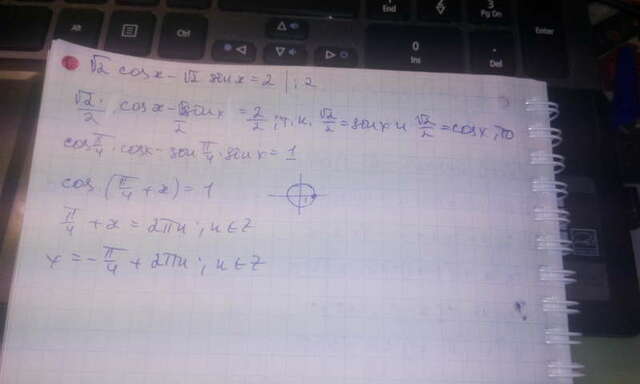 End
3
Pg Dn
Alt
Ctrl
0
Ins
.
Del
Enter
√2 cosx - √2 sinx = 2 | : 2
√2/2 · cosx - √2 sinx/2 = 2/2 ; т.к. √2/2 = sinx и √2/2 = cosx, то
cos π/4 · cosx - sin π/4 · sinx = 1
cos (π/4 + x) = 1
π/4 + x = 2πn ; n ∈ Z
x = -π/4 + 2πn ; n ∈ Z